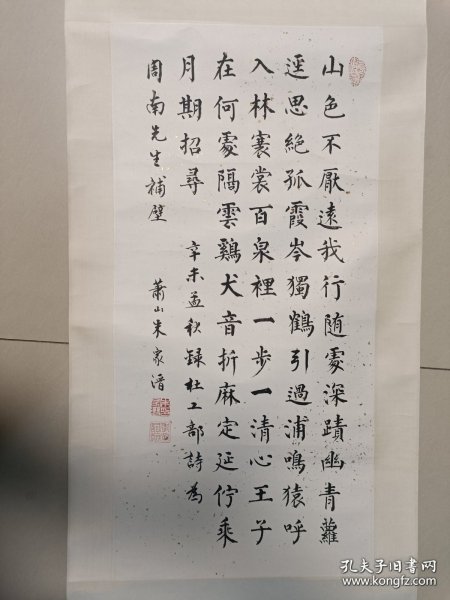 山色不厭遠我行随處深蹟幽青蘿
逕思絕孤霞岑獨鶴引過浦鳴猿呼
入林褰裳百泉裡一步一清心王子
在何處隔雲鷄犬音折麻定延佇乘
月期招尋
辛未孟秋録杜工部詩為
周南先生補壁
蕭山朱家溍
孔夫子旧书网
www.kongfz.com